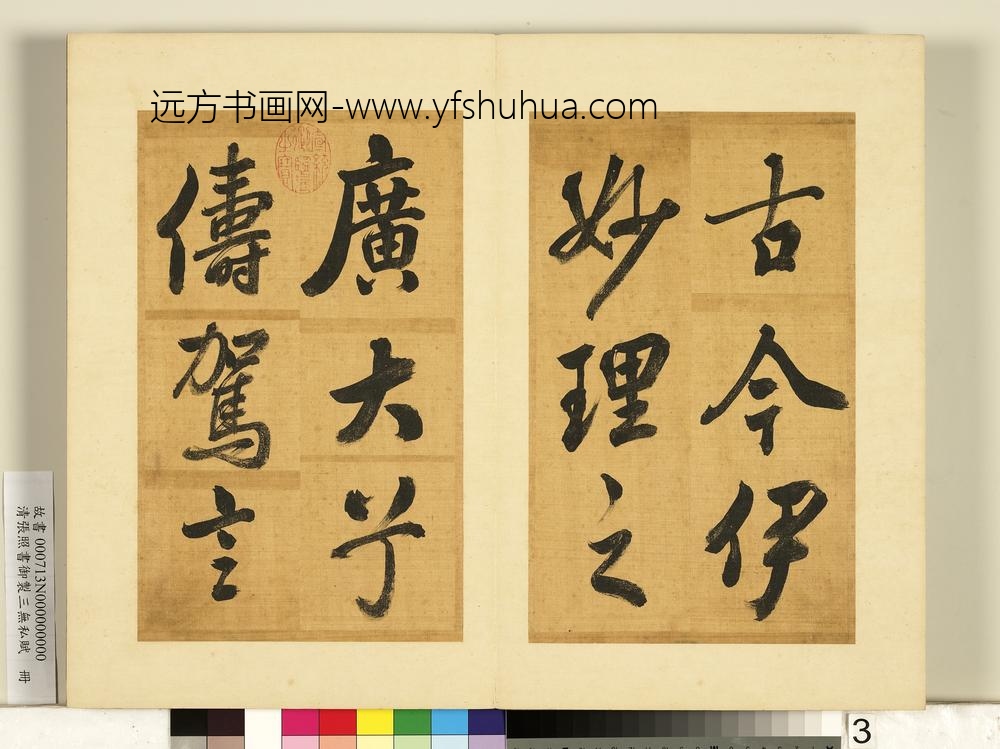 远方书画网-www.yfshuhua.com
古今伊
妙理之
廣大兮
儔駕言
故書 000713N000000000
清張照書御製三無私賦 冊
3